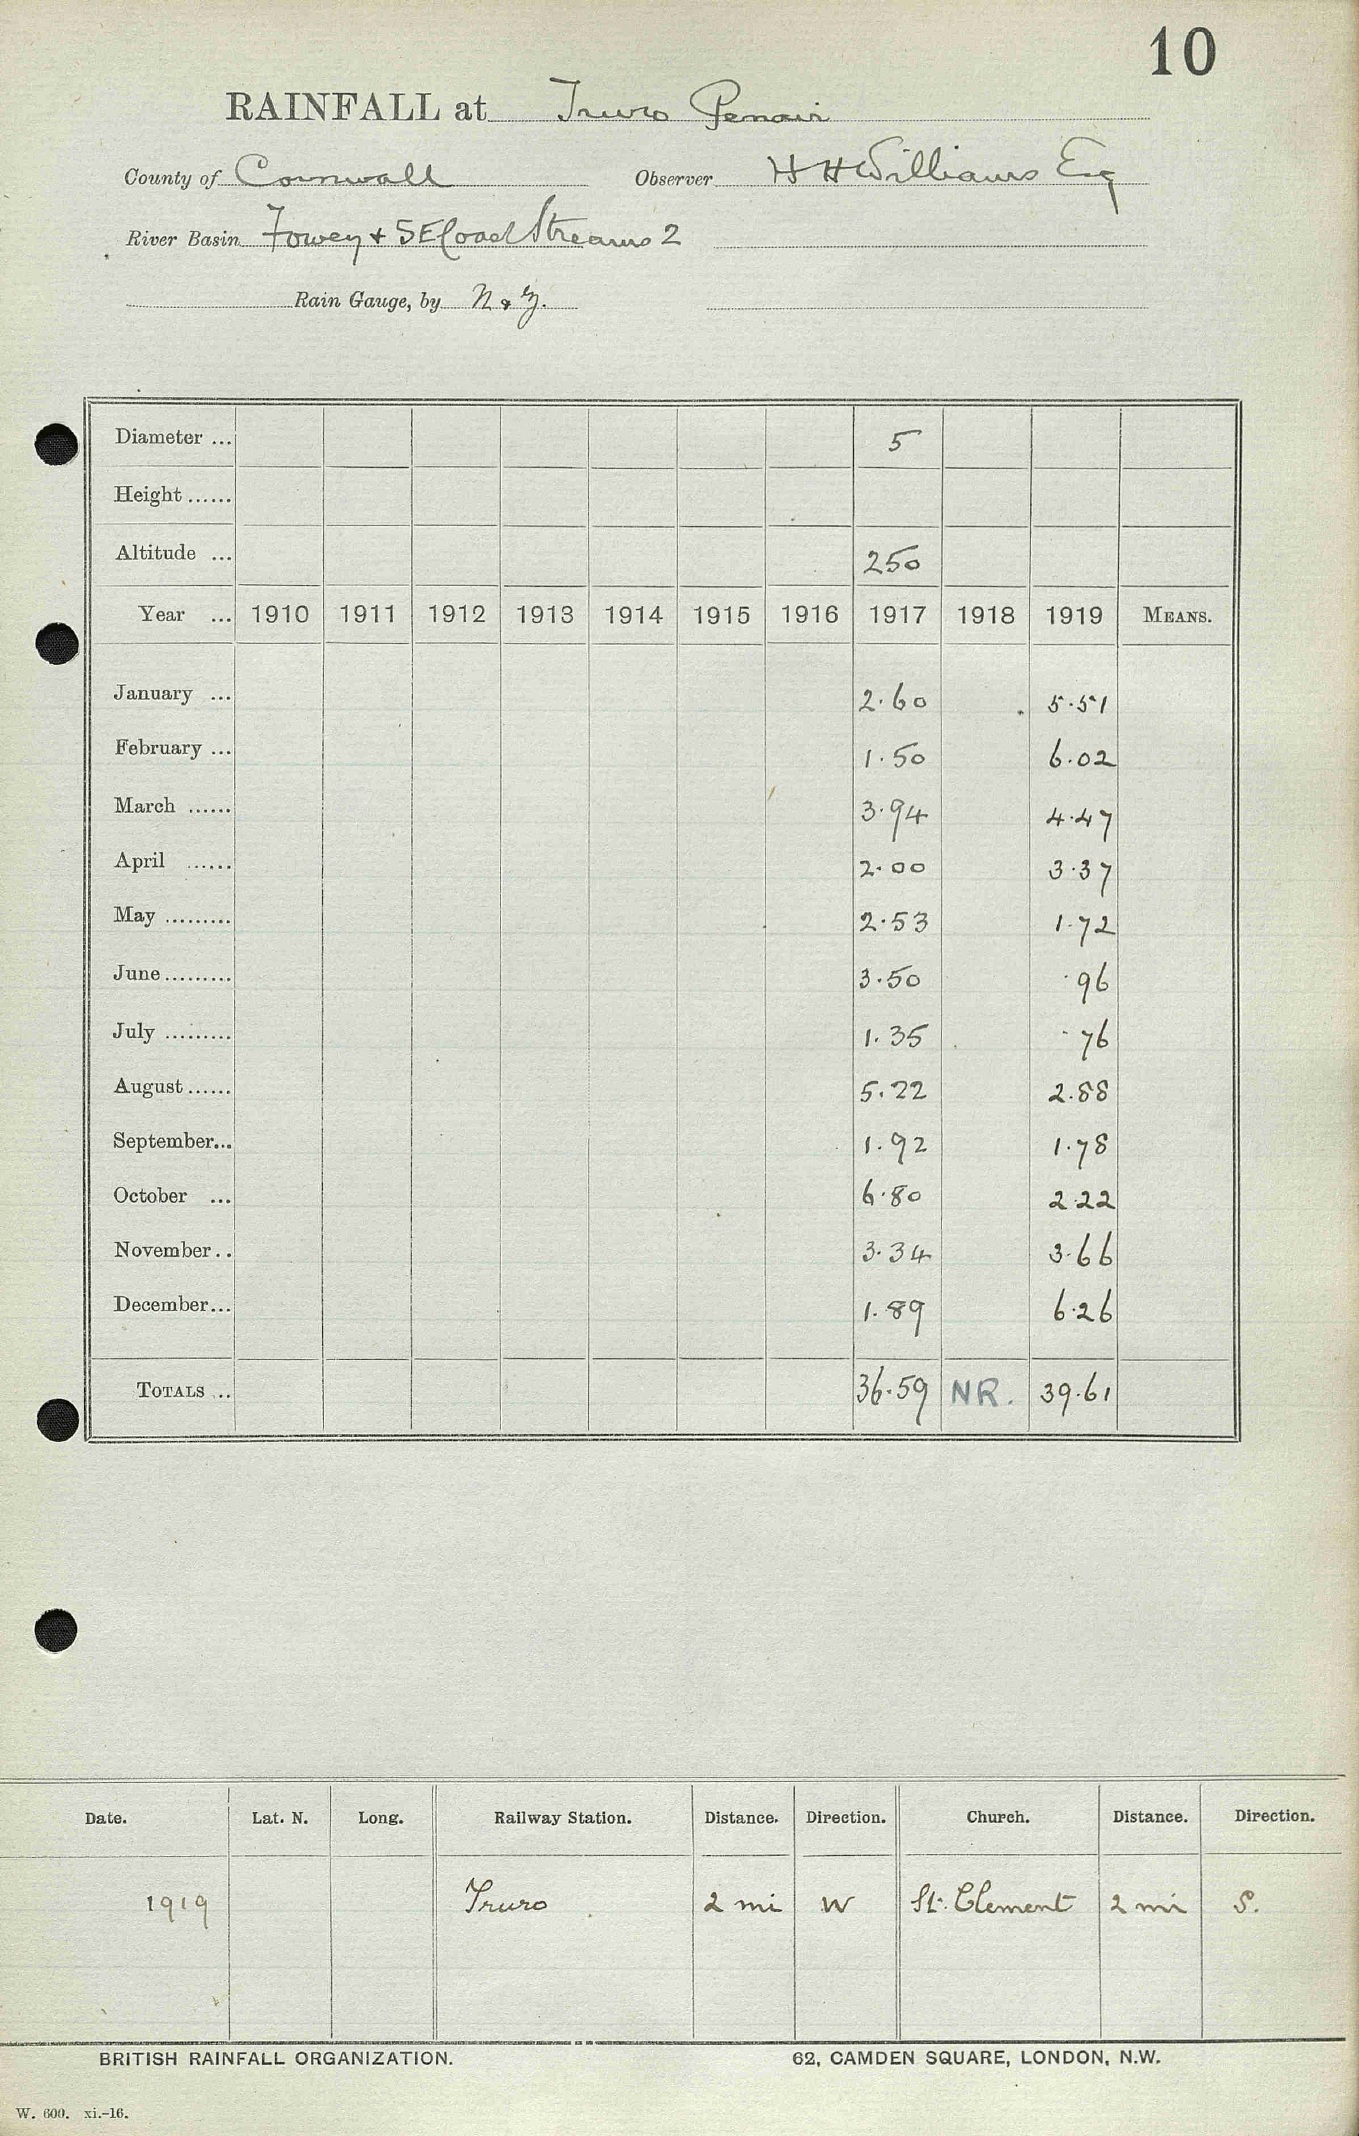 10
RAINFALL at Truro Penair
County of Cornwall Observer H H Williams Esq
River Basin Fowey + S E Coast Streams 2
Rain Gauge, by N & Z.
Diameter ... 5
Height ......
Altitude ... 250
Year ... 1910 1911 1912 1913 1914 1915 1916 1917 1918 1919 MEANS.
January ... 2.60 5.51
February ... 1.50 6.02
March ...... 3.94 4.47
April ...... 2.00 3.37
May ......... 2.53 1.72
June ......... 3.50 .96
July ......... 1.35 .76
August ...... 5.22 2.88
September... 1.92 1.78
October ... 6.80 2.22
November .. 3.34 3.66
December... 1.89 6.26
TOTALS ... 36.59 NR. 39.61
Date. Lat. N. Long. Railway Station. Distance. Direction. Church. Distance. Direction.
1919 Truro 2 mi W St. Clement 2 mi S.
BRITISH RAINFALL ORGANIZATION. 62, CAMDEN SQUARE, LONDON, N.W.
W. 600. xi.-16.